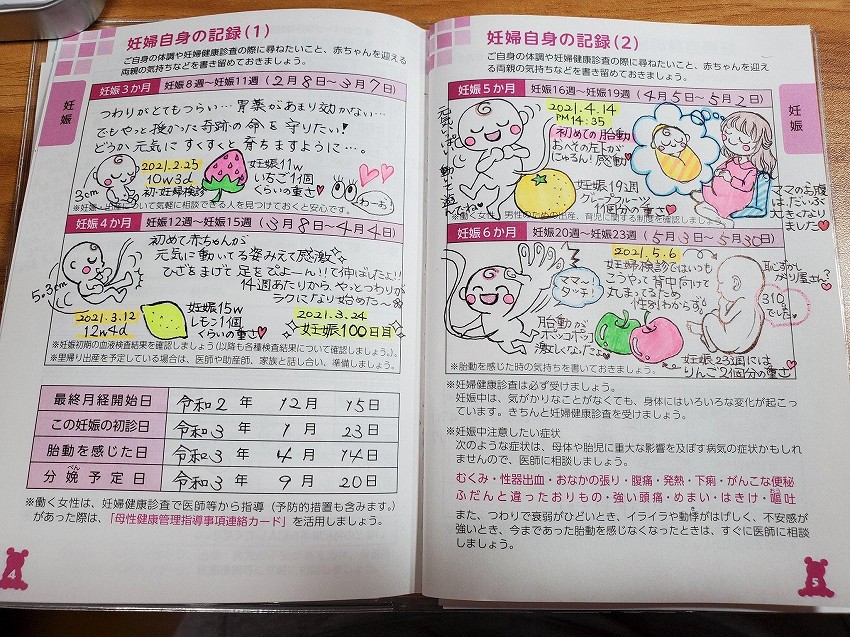 妊婦自身の記録(1)
ご自身の体調や妊婦健康診査の際に尋ねたいこと、赤ちゃんを迎える
両親の気持ちなどを書き留めておきましょう。
妊娠
妊娠3か月 妊娠8週〜妊娠11週 (2月8日〜3月7日)
つわりがとてもつらい…胃薬があまり効かない…
でもやっと授かった奇跡の命を守りたい!
どうか元気にすくすくと育ちますように…。
3cm
2021.2.25
10w3d
初・妊婦検診
妊娠11w
いちご1個
くらいの重さ♥
わーお!
※妊娠・出産について気軽に相談できる人を見つけておくと安心です。
妊娠4か月 妊娠12週〜妊娠15週 (3月8日〜4月4日)
初めて赤ちゃんが
元気に動いてる姿みえて感激
ひざをまげて足をぴよーん!!て伸ばしたよ!!
14週あたりから、やっとつわりが
ラクになり始めた〜
5.3cm
2021.3.12
12w4d
妊娠15w
レモン1個
くらいの重さ♥
2021.3.24
妊娠100日目
※妊娠初期の血液検査結果を確認しましょう(以降も各種検査結果について確認しましょう。)。
※里帰り出産を予定している場合は、医師や助産師、家族と話し合い、準備しましょう。
最終月経開始日 令和2年 12月 15日
この妊娠の初診日 令和3年 1月 23日
胎動を感じた日 令和3年 4月 14日
分娩予定日 令和3年 9月 20日
べん
※働く女性は、妊婦健康診査で医師等から指導(予防的措置も含みます。)
があった際は、「母性健康管理指導事項連絡カード」を活用しましょう。
4
妊婦自身の記録(2)
ご自身の体調や妊婦健康診査の際に尋ねたいこと、赤ちゃんを迎え
る両親の気持ちなどを書き留めておきましょう。
妊娠
妊娠5か月 妊娠16週〜妊娠19週 (4月5日〜5月2日)
元気いっぱい動いて遊んでね♡
2021.4.14
PM 14:35
初めての胎動
おへその左下が
にゅるん!感動
妊娠19週
グレープフルーツ
1個分の重さ♥
ママのお腹
は、だいぶ
大きくなり
ました♥
※働く女性・男性のための出産、育児に関する制度を確認しましょう
妊娠6か月 妊娠20週〜妊娠23週 (5月3日〜5月30日)
ママ〜
タッチ!
胎動が
ポッコポッコ
激しくなったょ
2021.5.6
妊婦検診ではいつも
こうやって背中向けて
丸まってるため
性別わからず。
恥ずかし
がり屋さん?
310g
でした。
妊娠23週には
りんご2個分の重さ♥
※胎動を感じた時の気持ちを書いておきましょう。
※妊婦健康診査は必ず受けましょう。
妊娠中は、気がかりなことがなくても、身体にはいろいろな変化が起こっ
ています。きちんと妊婦健康診査を受けましょう。
※妊娠中注意したい症状
次のような症状は、母体や胎児に重大な影響を及ぼす病気の症状かもしれ
ませんので、医師に相談しましょう。
むくみ・性器出血・おなかの張り・腹痛・発熱・下痢・がんこな便秘
ふだんと違ったおりもの・強い頭痛・めまい・はきけ・嘔吐
また、つわりで衰弱がひどいとき、イライラや動悸がはげしく、不安感が
強いとき、今まであった胎動を感じなくなったときは、すぐに医師に相談
しましょう。
5